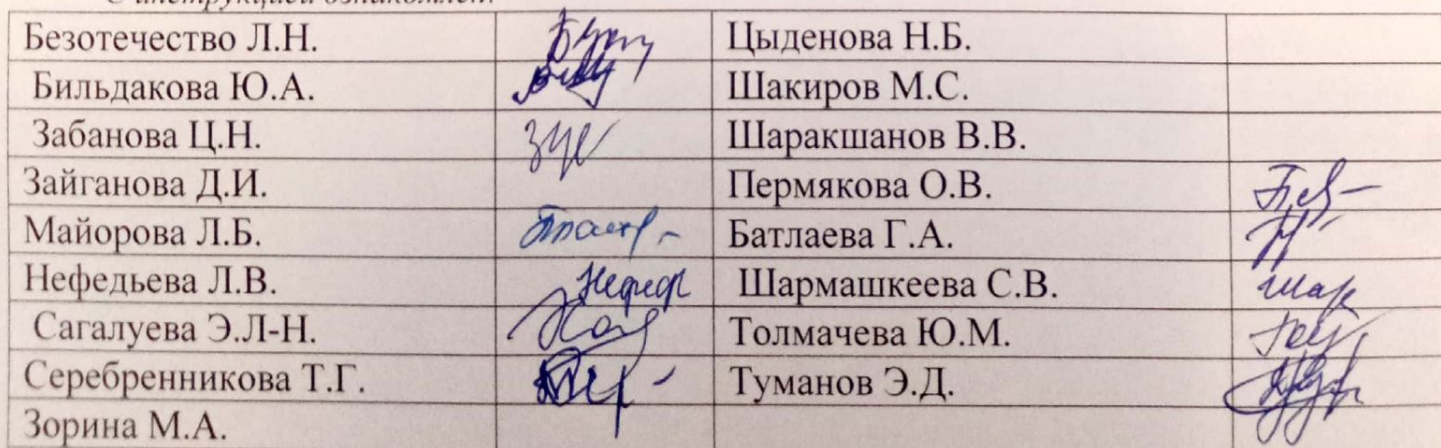 С инструкцией ознакомлен:
Безотечество Л.Н. Цыденова Н.Б.
Бильдакова Ю.А. Шакиров М.С.
Забанова Ц.Н. Шаракшанов В.В.
Зайганова Д.И. Пермякова О.В.
Майорова Л.Б. Батлаева Г.А.
Нефедьева Л.В. Шармашкеева С.В.
Сагалуева Э.Л-Н. Толмачева Ю.М.
Серебренникова Т.Г. Туманов Э.Д.
Зорина М.А.